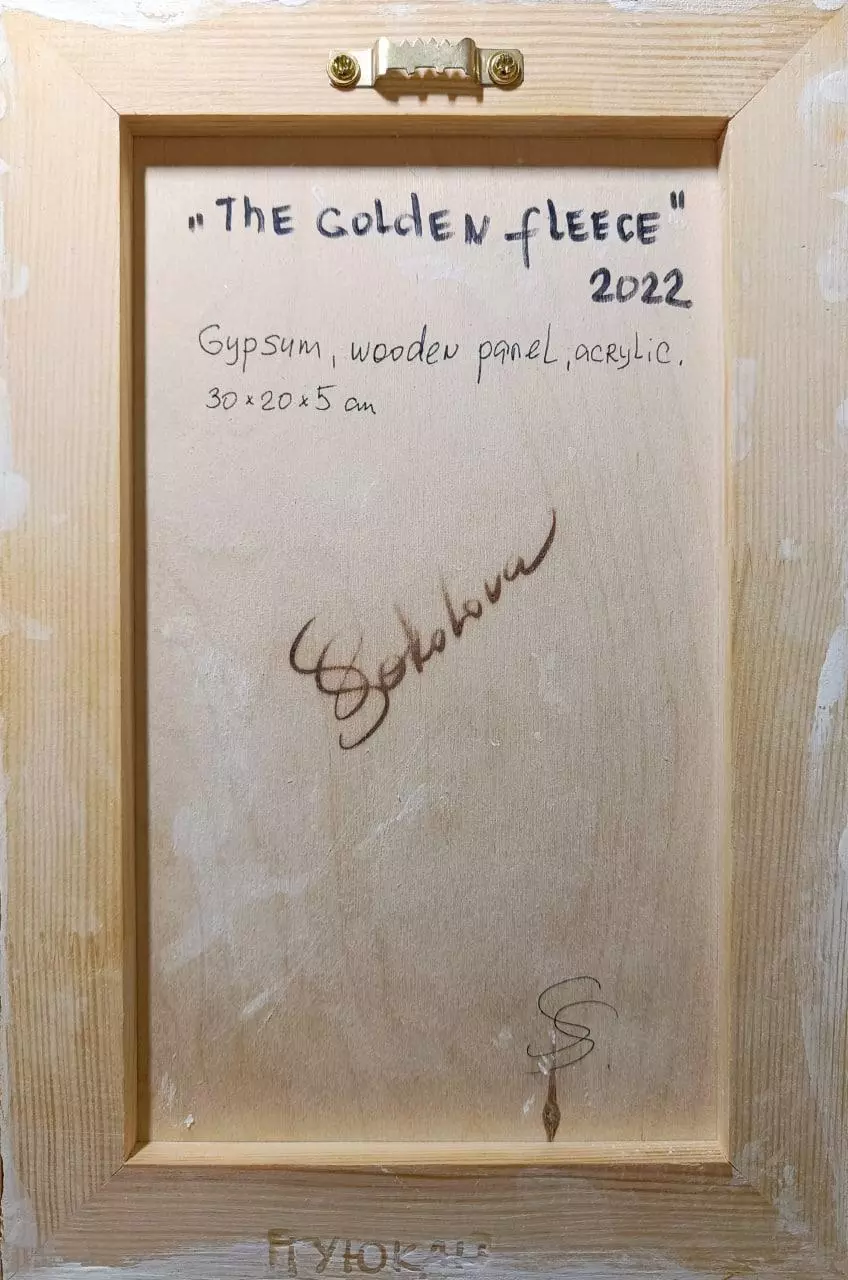 „The Golden fleece"
2022
Gypsum, wooden panel, acrylic.
30 × 20 × 5 cm
SSokolova
SS